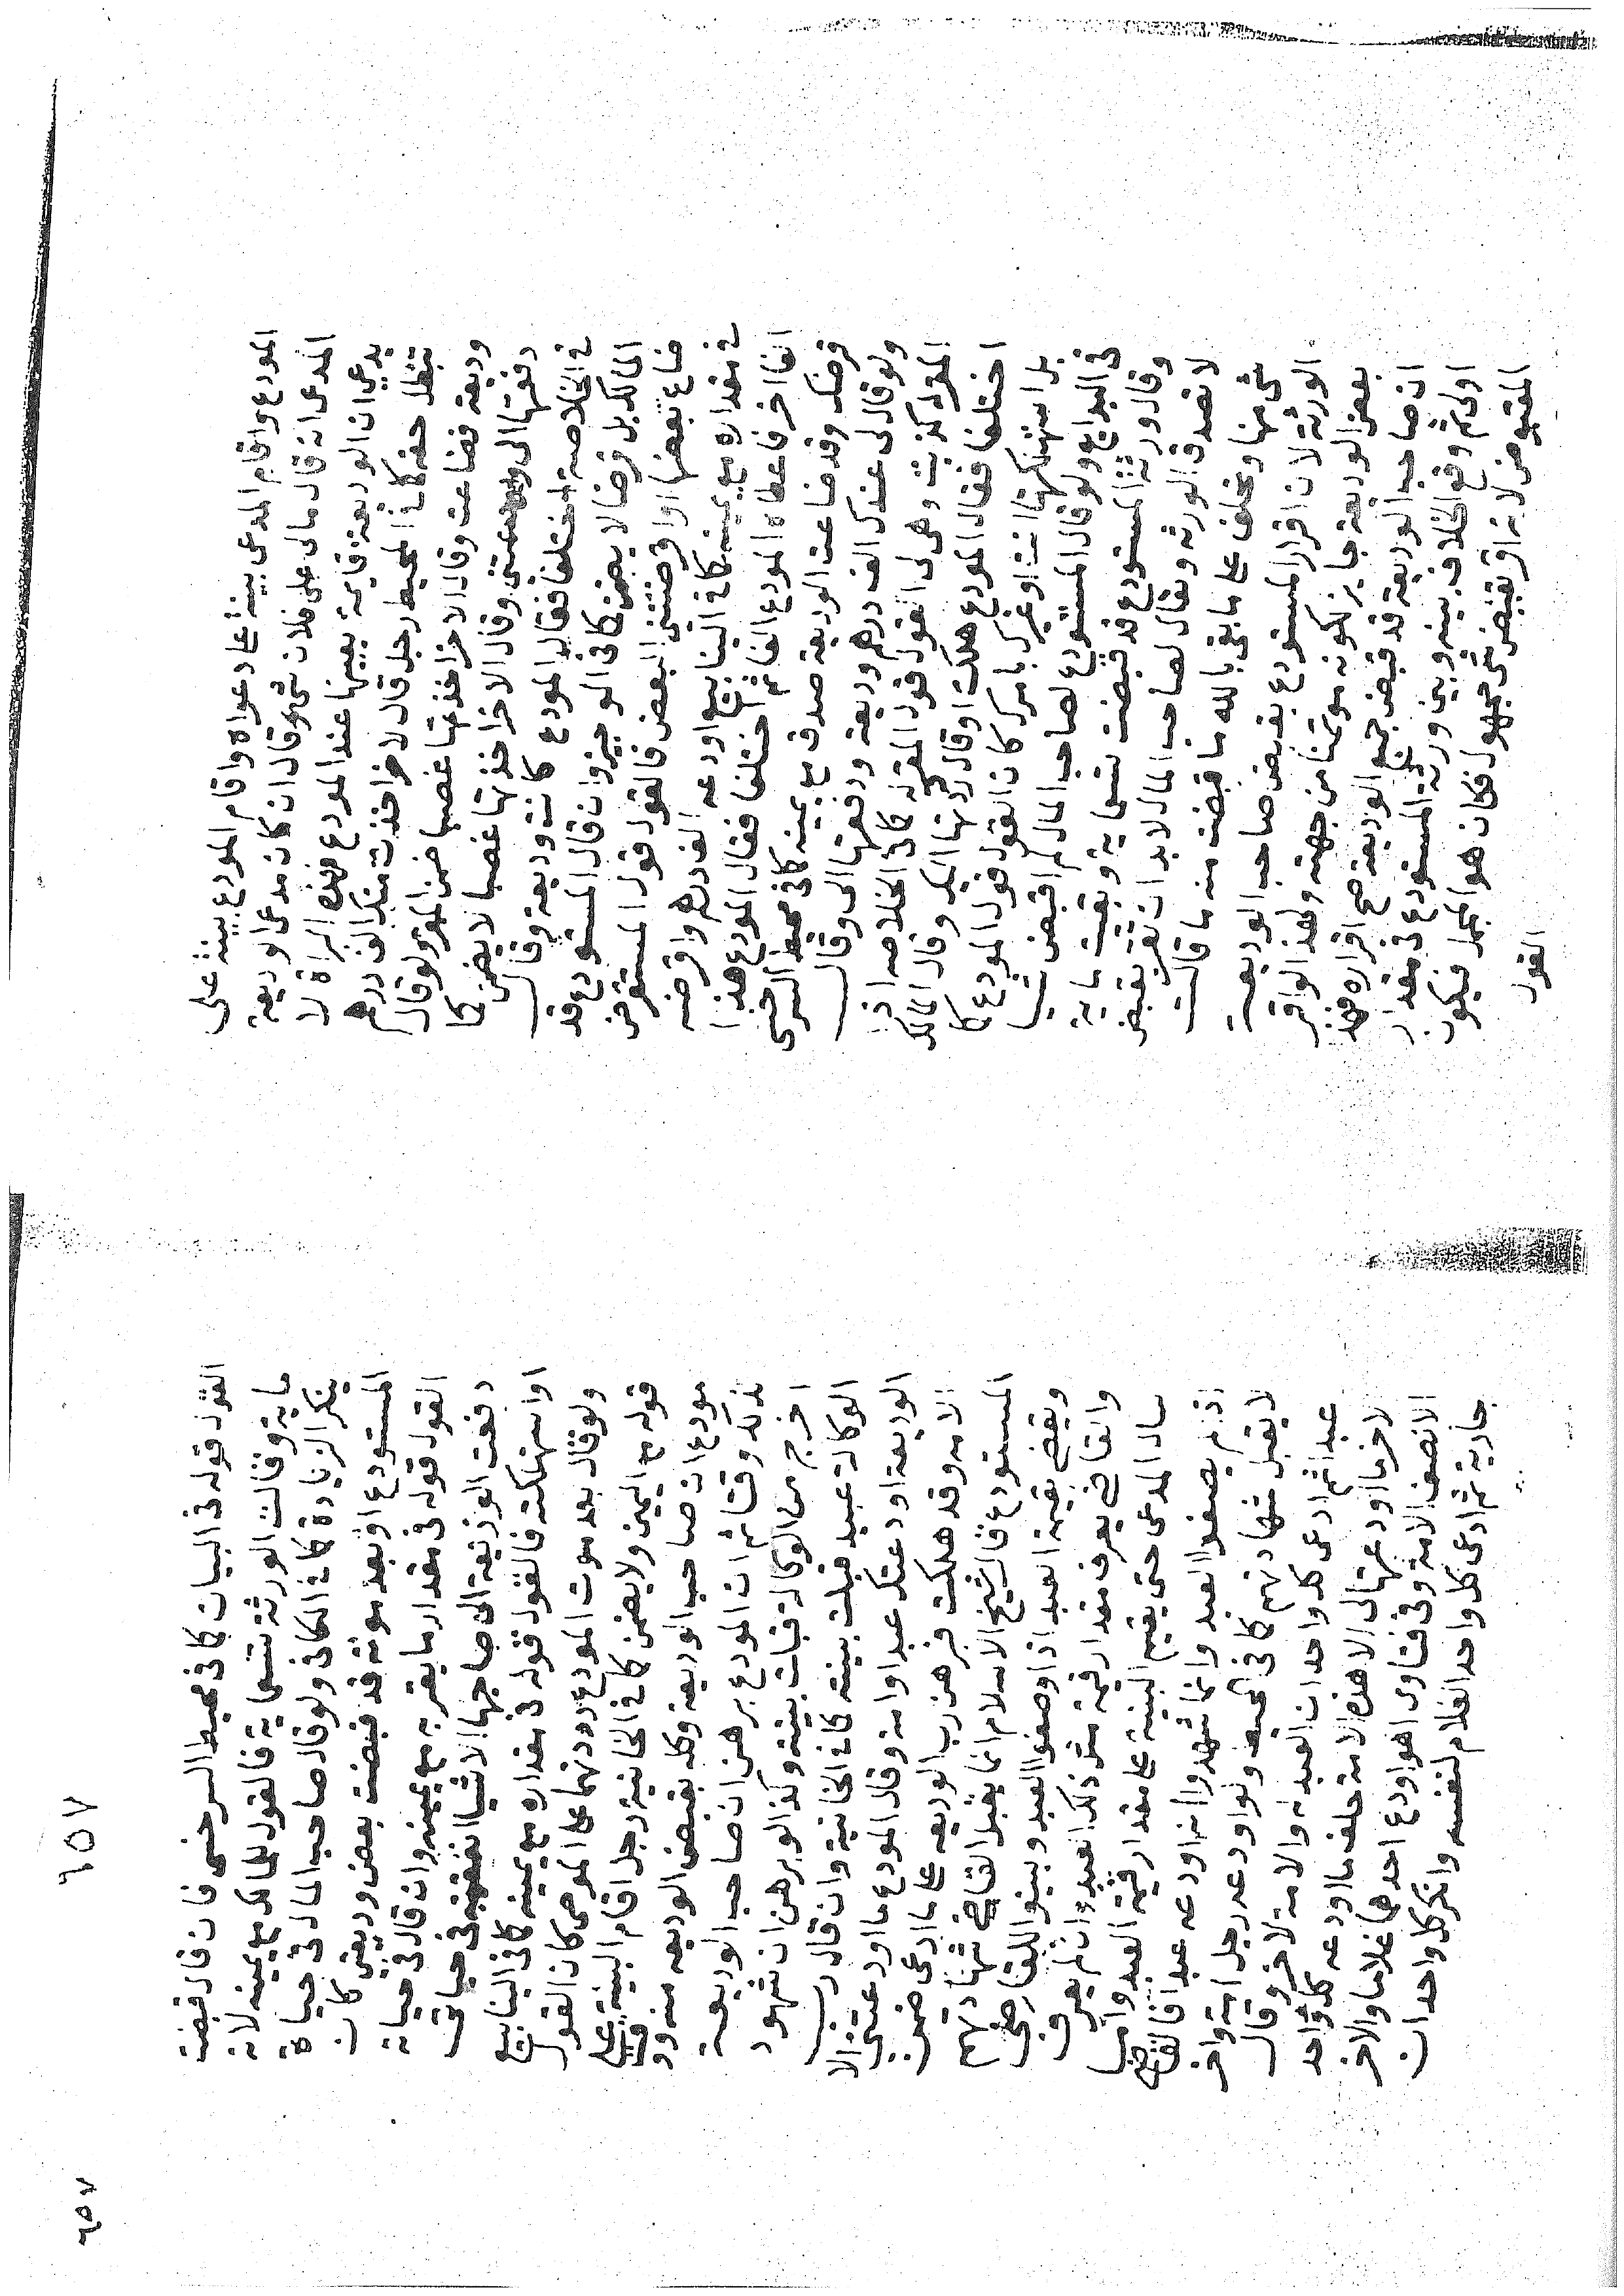 المودع واقام المدعى بينة على دعواه واقام المودع بينة على
المدعى انه قال مالى على فلان شى وقال ان كان مدعى الوديعة
يدعى ان الوديعة قايمة بعينها عند المودع فهذه البراة لا
تبطل حقه كما فى المحيط رجل قال لاخر اخذت منك الف درهم
وديعة فضاعت وقال الاخر اخذتها غصبا ضمن المقر ولو قال
دفعتها الى وقال الاخر اخذتها غصبا لا يضمن كما
فى الخلاصة اختلفا فقال المودع كانت وديعة وقال
المالك بل قرضا لا يضمن كما فى الوجيز وان قال المستودع قد
ضاع بعضها او اقرضتنى البعض فالقول قول المستقرض
فى مقداره مع يمينه كما فى الينابيع اودعه الف درهم واقرضه
الفا اخر فاعطاه المودع الفا ثم اختلفا فقال المودع هذا
قرضك وقد ضاعت الوديعة صدق مع يمينه كما فى محيط السرخسى
ولو قال لى عندك الف درهم وديعة ودفعتها الى وقال
المقر له كذبت وهى لى القول قول المقر له كما فى الخلاصه اذا
اختلفا فقال المودع هلكت او قال رددتها اليك وقال المالك
بل استهلكتها انت او غيرك بامرك كان القول قول المودع كما
فى البدايع ولو قال المستودع لصاحب المال لم اقبض شيا
وقال ورثة المستودع قد قبضت تسعماية وبقيت ماية
لا تصدق الورثه ويقال لصاحب المال لا بد ان تقر بقبض
شى منها وتحلف على ما بقى بالله ما قبضت منه ما قالت
الورثة لان اقرار المستودع بقبض صاحب الوديعة
بعض الوديعة جايز لكونه موتمنا من جهته ولهذا لو اقر
ان صاحب الوديعة قد قبض جميع الوديعة صح اقراره فهذا
اولى ثم وقع الخلاف بينه وبين ورثة المستودع فى مقدار
المقبوض لانه اقر بقبض شى مجهول فكان هو المجمل فيكون
القول
٦٥٧
القول قوله فى البيان كما فى محيط السرخسى فان قال قبضت
ماية وقالت الورثة تسعماية فالقول للمالك مع يمينه لانه
ينكر الزيادة كما فى الكافى ولو قال صاحب المال فى حياة
المستودع او بعد موته قد قبضت بعض وديعتى كان
القول قوله فى مقدار ما يقر به مع يمينه وان قال فى حياته
دفعت الوديعة الى صاحبها الا شيا انفقته فى حياتى
او استهلكته فالقول قوله فى مقداره مع يمينه كما فى الينابيع
ولو قال بعد موت المودع رددتها على الموصى كان القول
قوله مع اليمين ولا يضمن كما فى الخانية رجل اقام البينة على
مودع ان صاحب الوديعة وكله بقبض الوديعه منه
بذلك وقتا ثم ان المودع برهن ان صاحب الوديعة
اخرج من الوكالة قبلت بينته وكذا لو برهن ان شهود
الوكالة عبيد قبلت بينته كما فى الخانية وان قال رب
الوديعة اودعتك عبدا وامة وقال المودع ما اودعتنى الا
الامه وقد هلكت فبرهن رب الوديعه على ما ادعى ضمن
المستودع قال شيخ الاسلام انما يقبل القاضى شهادتهم
ويقضى بقيمة العبد اذا وصفوا العبد وبينوا للقاضى
والقاضى يعرف مقدار قيمة مثل ذلك العبد وان لم يعرف
سال المدعى حتى يقيم البينة على مقدار قيمة العبد واما
اذ لم يصفوا العبد وانما شهدوا انه اودعه عبدا فالقاضى
لا يقبل شهادتهم كما فى المحيط ولو اودعه رجل امة واخر
عبدا ثم ادعى كل واحد ان العبد له والامة لاخر وقال
لاخر ما اودعتهالى الا هذه الامة حلف ما اودعه كل واحد
الا نصف الامة وفى فتاوى اهو اودع احدهما غلاما والاخر
جارية ثم ادعى كل واحد الغلام لنفسه وانكر كل واحد ان
٦٥٧